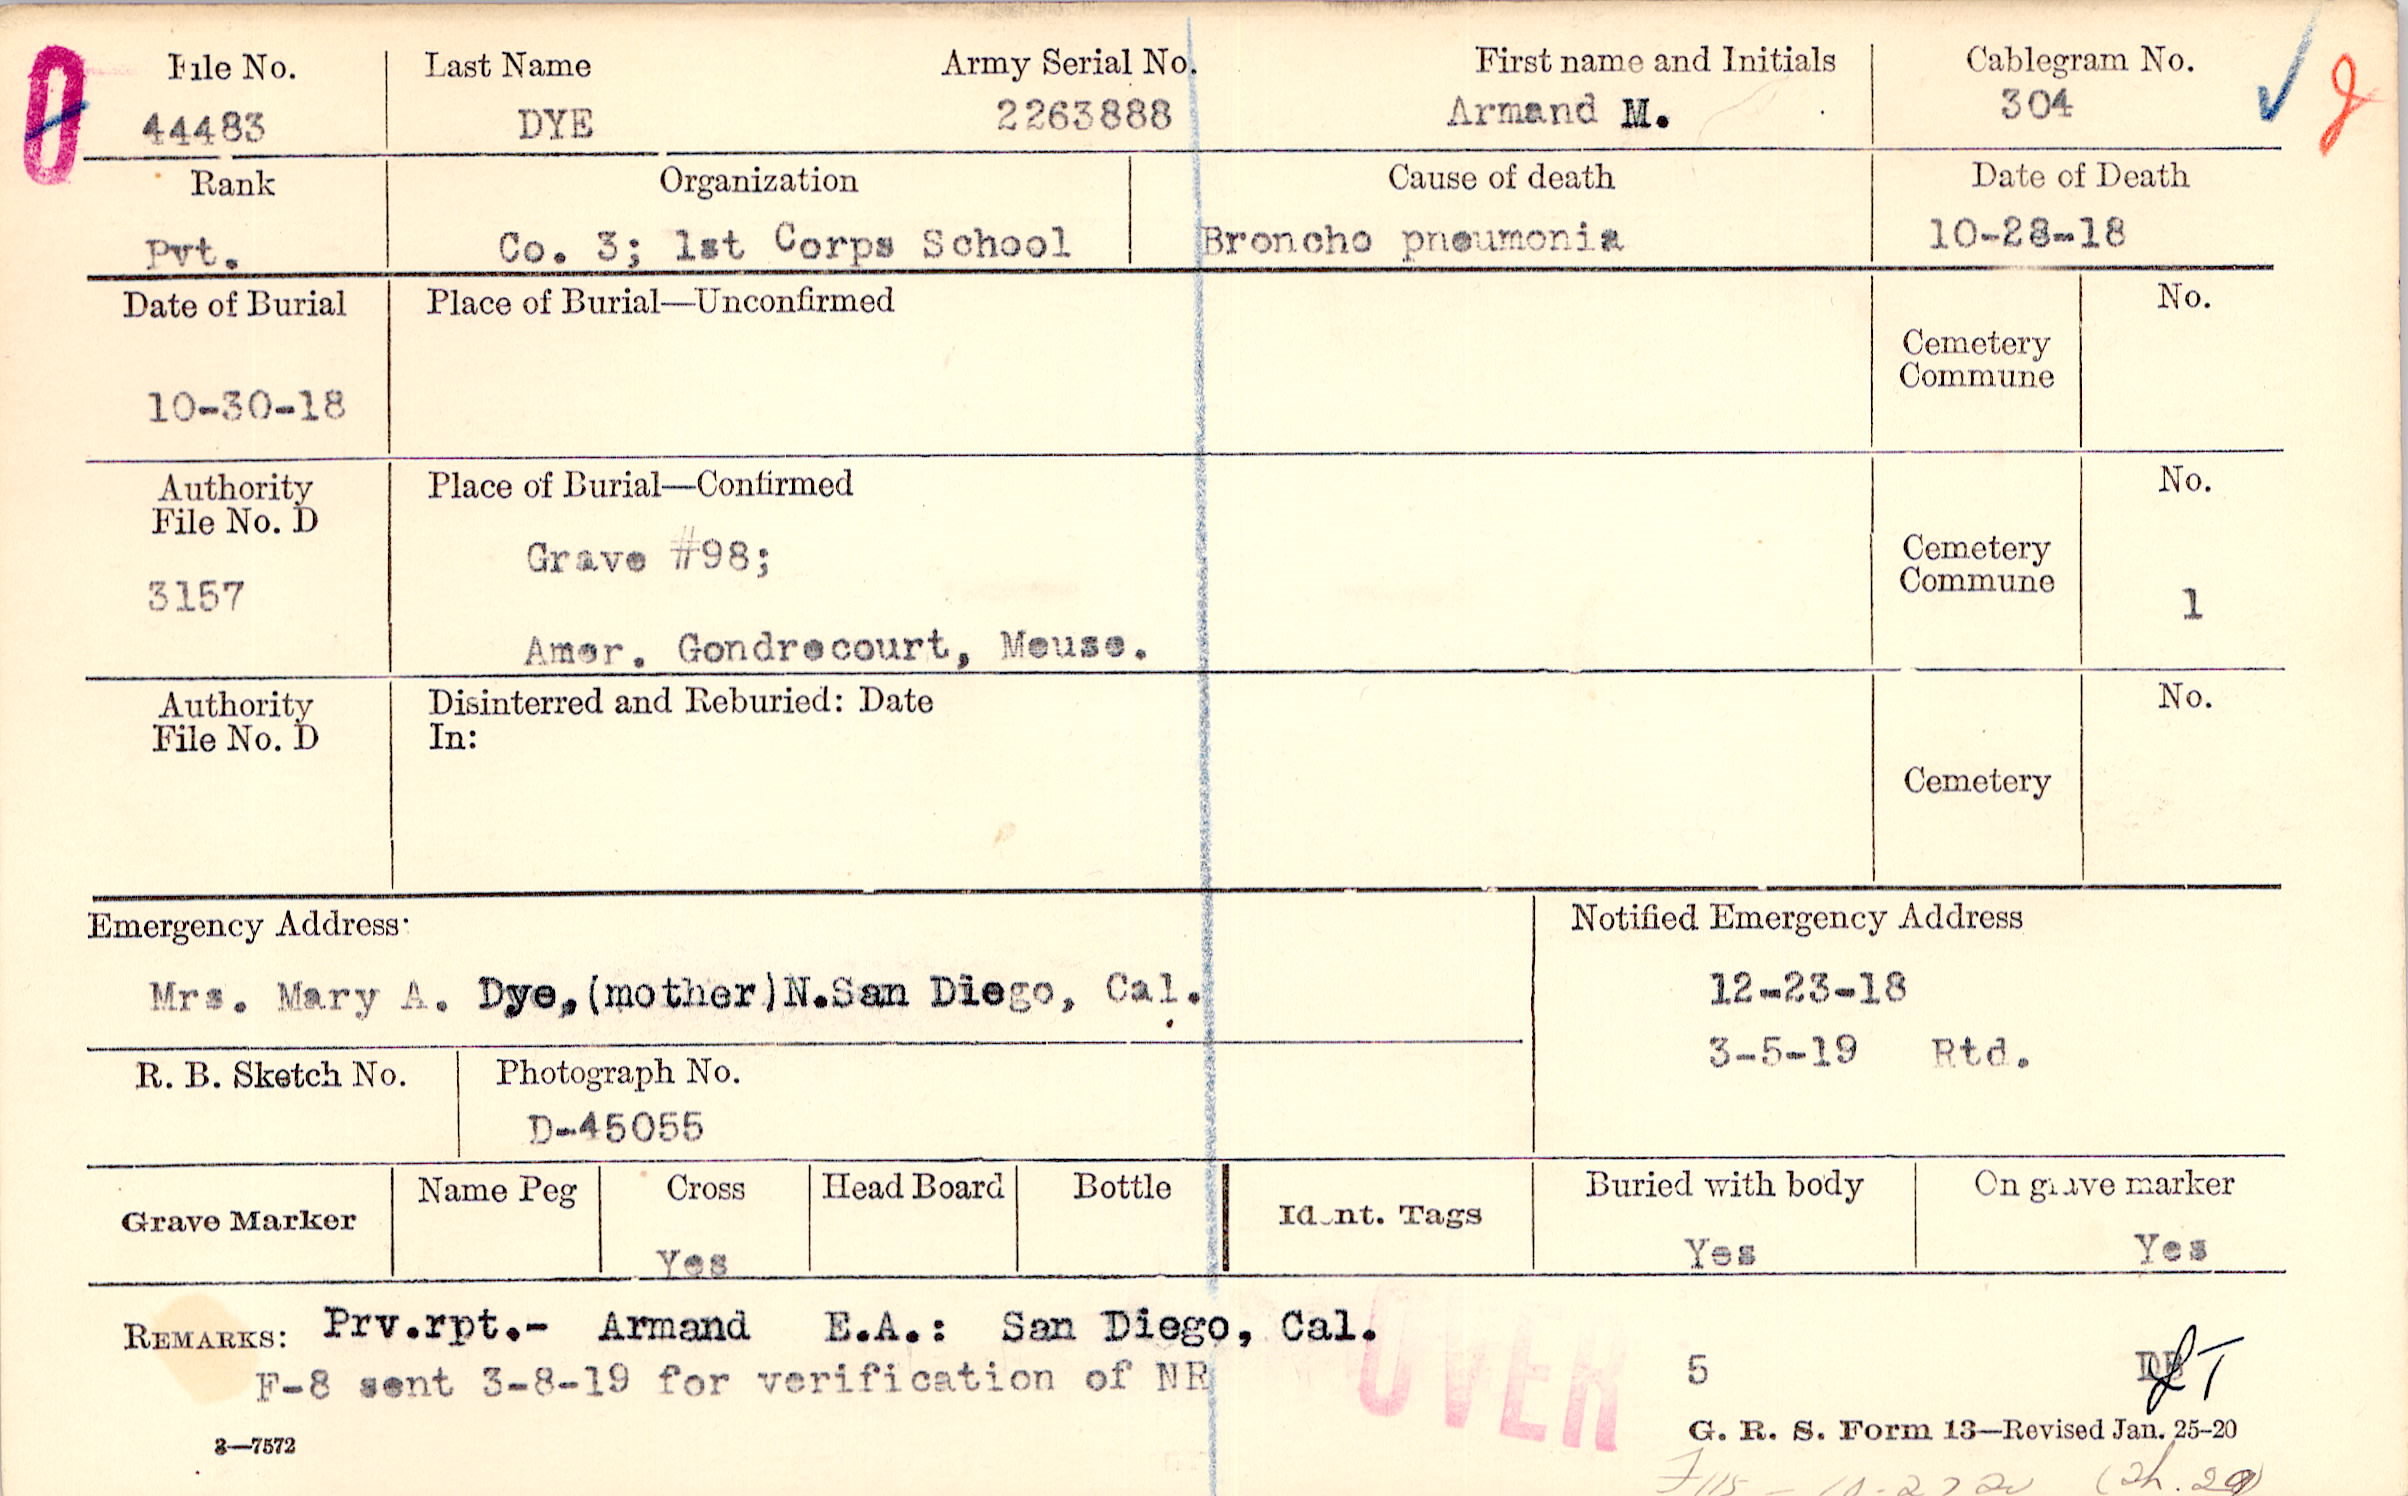 File No. Last Name Army Serial No. First name and Initials Cablegram No.
44483 DYE 2263888 Armand M. 304
Rank Organization Cause of death Date of Death
Pvt. Co. 3; 1st Corps School Broncho pneumonia 10-28-18
Date of Burial Place of Burial—Unconfirmed No.
Cemetery
Commune
10-30-18
Authority Place of Burial—Confirmed No.
File No. D
Grave #98; Cemetery
Commune
3157 1
Amer. Gondrecourt, Meuse.
Authority Disinterred and Reburied: Date No.
File No. D In:
Cemetery
Emergency Address: Notified Emergency Address
Mrs. Mary A. Dye,(mother)N.San Diego, Cal. 12-23-18
3-5-19 Rtd.
R. B. Sketch No. Photograph No.
D-45055
Grave Marker Name Peg Cross Head Board Bottle Ident. Tags Buried with body On grave marker
Yes Yes Yes
REMARKS: Prv.rpt.- Armand E.A.: San Diego, Cal.
F-8 sent 3-8-19 for verification of NR 5
OVER
3—7572 G. R. S. Form 13—Revised Jan. 25-20